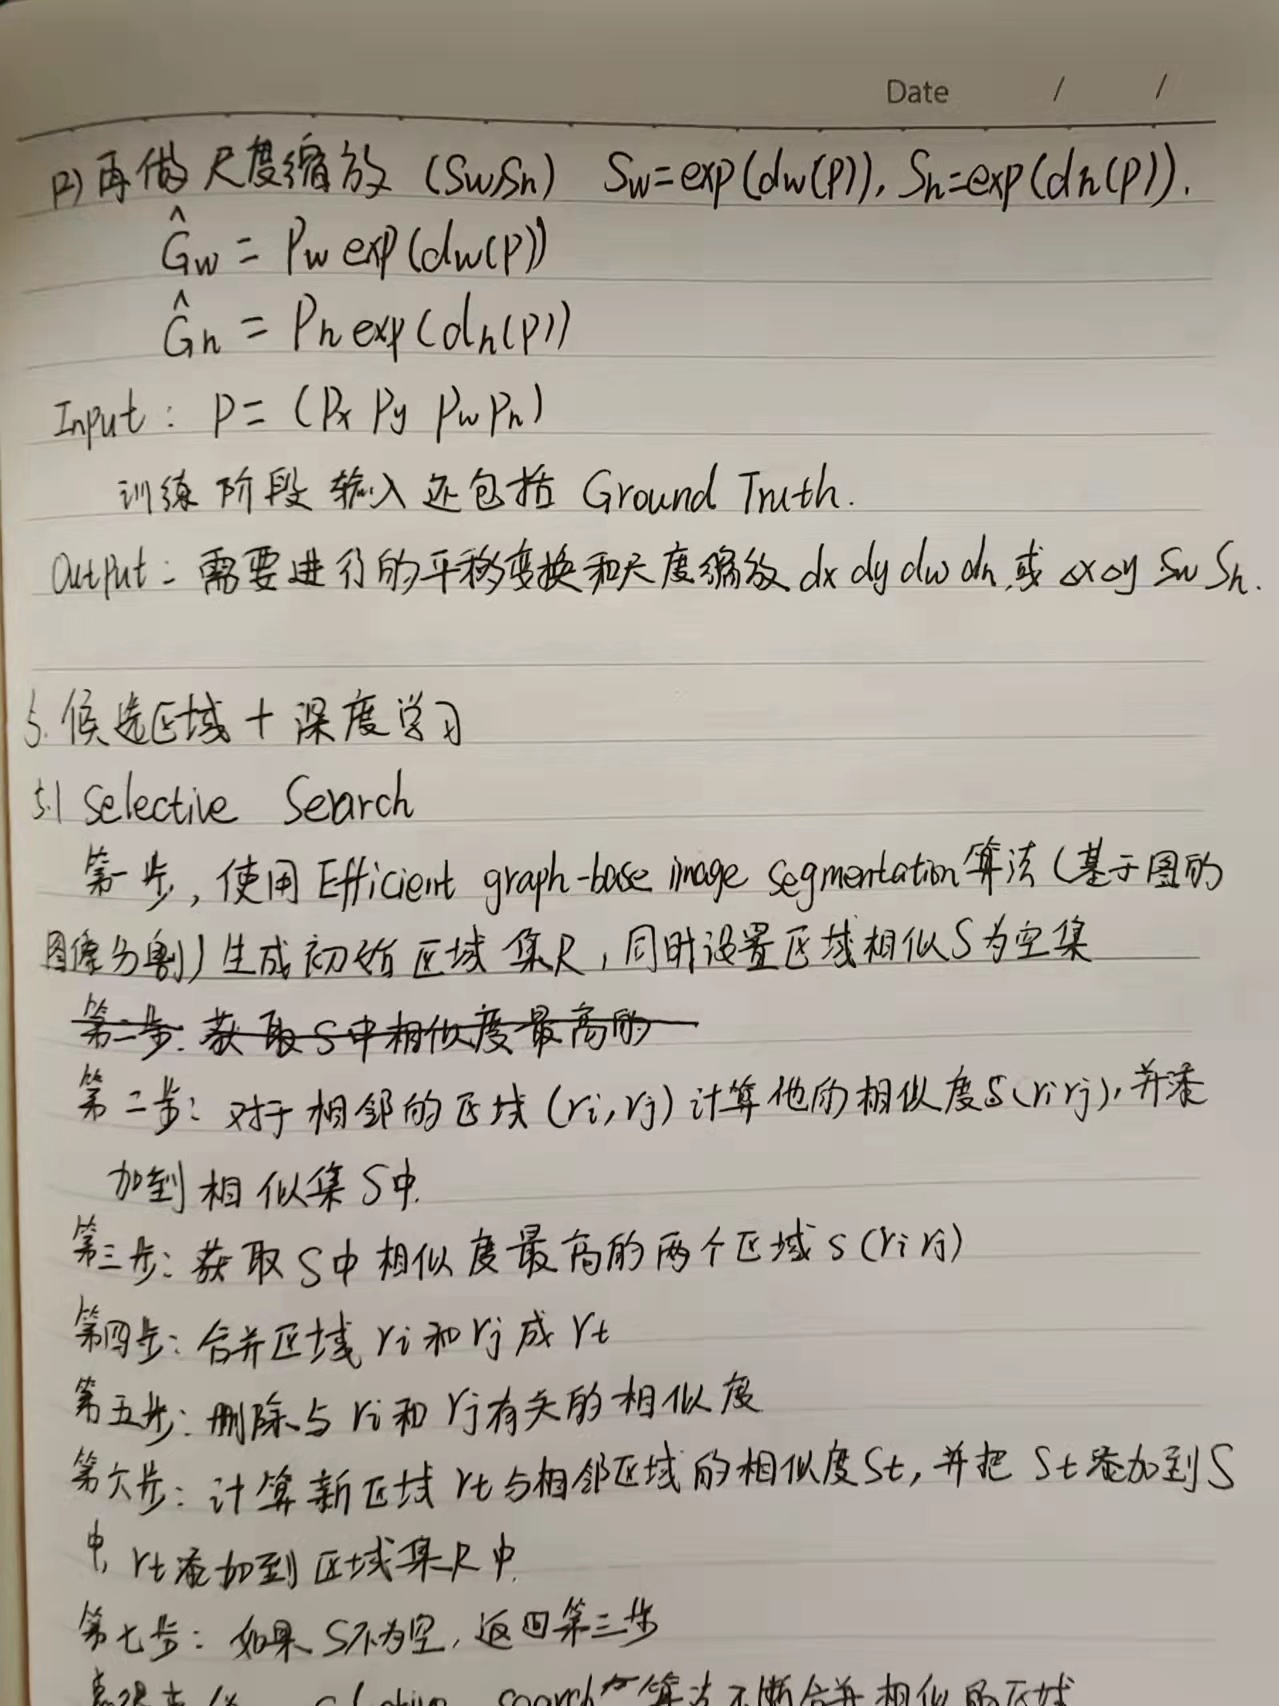 Date / /
(2) 再做尺度缩放 (Sw,Sh) Sw=exp(dw(p)), Sh=exp(dh(p)).
Ĝw = Pw exp(dw(p))
Ĝh = Ph exp(dh(p))
Input: P= (Px Py Pw Ph)
训练阶段输入还包括 Ground Truth.
Output: 需要进行的平移变换和尺度缩放 dx dy dw dh, 或 △x △y Sw Sh.
5. 候选区域 + 深度学习
5.1 Selective Search
第一步, 使用 Efficient graph-base image segmentation算法 (基于图的
图像分割) 生成初始区域集R, 同时设置区域相似S为空集
第二步: 获取S中相似度最高的
第二步: 对于相邻的区域 (ri, rj) 计算他的相似度S(ri rj), 并添
加到相似集S中.
第三步: 获取S中相似度最高的两个区域 s (ri rj)
第四步: 合并区域 ri 和 rj 成 rt
第五步: 删除与 ri 和 rj 有关的相似度
第六步: 计算新区域 rt 与相邻区域的相似度St, 并把 St 添加到S
中, rt 添加到区域集R中.
第七步: 如果S不为空, 返回第三步
search 算法不断合并相似的区域